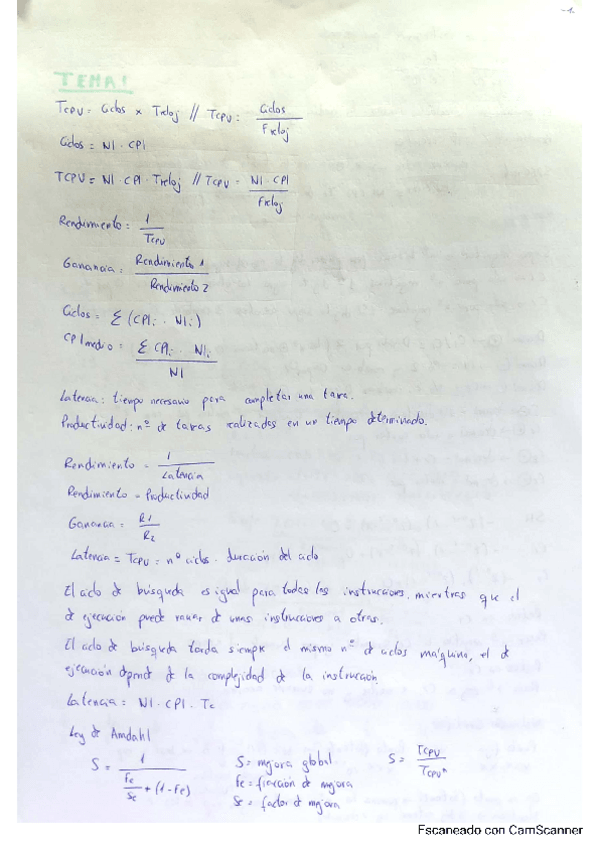 -1.
TEMA 1
TCPU = Ciclos x Treloj // TCPU = Ciclos / Freloj
Ciclos = NI · CPI
TCPU = NI · CPI · Treloj // TCPU = NI · CPI / Freloj
Rendimiento = 1 / TCPU
Ganancia = Rendimiento 1 / Rendimiento 2
Ciclos = Σ (CPIi · NIi)
CPI medio = Σ CPIi · NIi / NI
Latencia: tiempo necesario para completar una tarea.
Productividad: nº de tareas realizadas en un tiempo determinado.
Rendimiento = 1 / Latencia
Rendimiento = Productividad
Ganancia = R1 / R2
Latencia = TCPU = nº ciclos · duración del ciclo
El ciclo de búsqueda es igual para todas las instrucciones, mientras que el
de ejecución puede variar de unas instrucciones a otras.
El ciclo de búsqueda tarda siempre el mismo nº de ciclos máquina, el de
ejecución depende de la complejidad de la instrucción
Latencia = NI · CPI · Tc
Ley de Amdahl
S = 1 / Fe/Se + (1 - Fe)
S = mejora global
Fe = fracción de mejora
Se = factor de mejora
S = TCPU / TCPUn
Escaneado con CamScanner